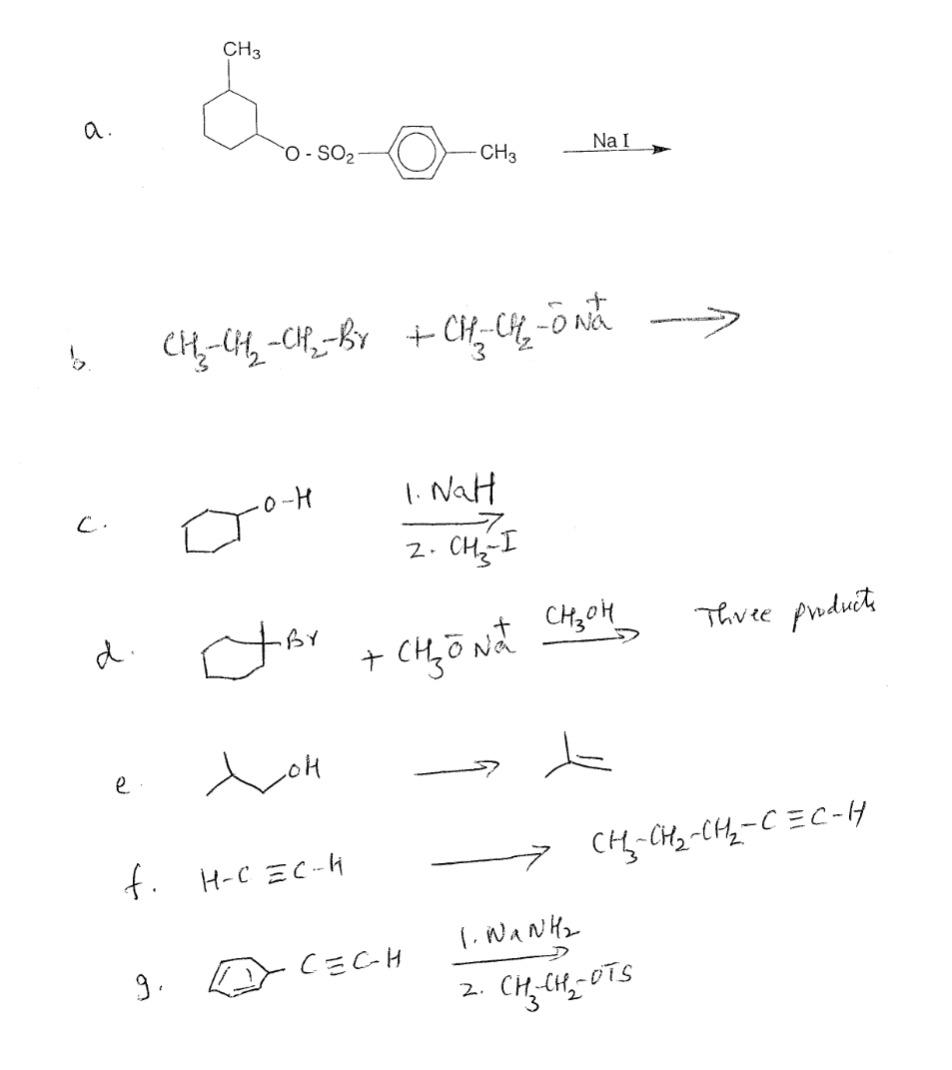 CH3
a.
O-SO2 CH3
Na I
b. CH3-CH2-CH2-Br + CH3-CH2-ŌNa⁺
c. O-H
1. NaH
2. CH3-I
d. Br + CH3ŌNa⁺ CH3OH Three products
e. OH
f. H-C≡C-H CH3-CH2-CH2-C≡C-H
g. C≡C-H
1. NaNH2
2. CH3-CH2-OTS